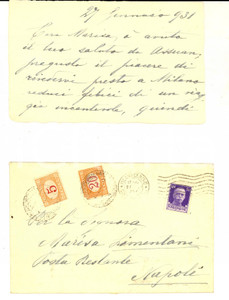 27 Gennaro 931
Cara Maresa, ò avuto
il tuo saluto da Assuan,
pregusto il piacere di
presto a Milano
reduci felici di un viag
gio incantevole, quindi
5
20
Per la Signora
Maresa Limentani
Posta Restante
Napoli